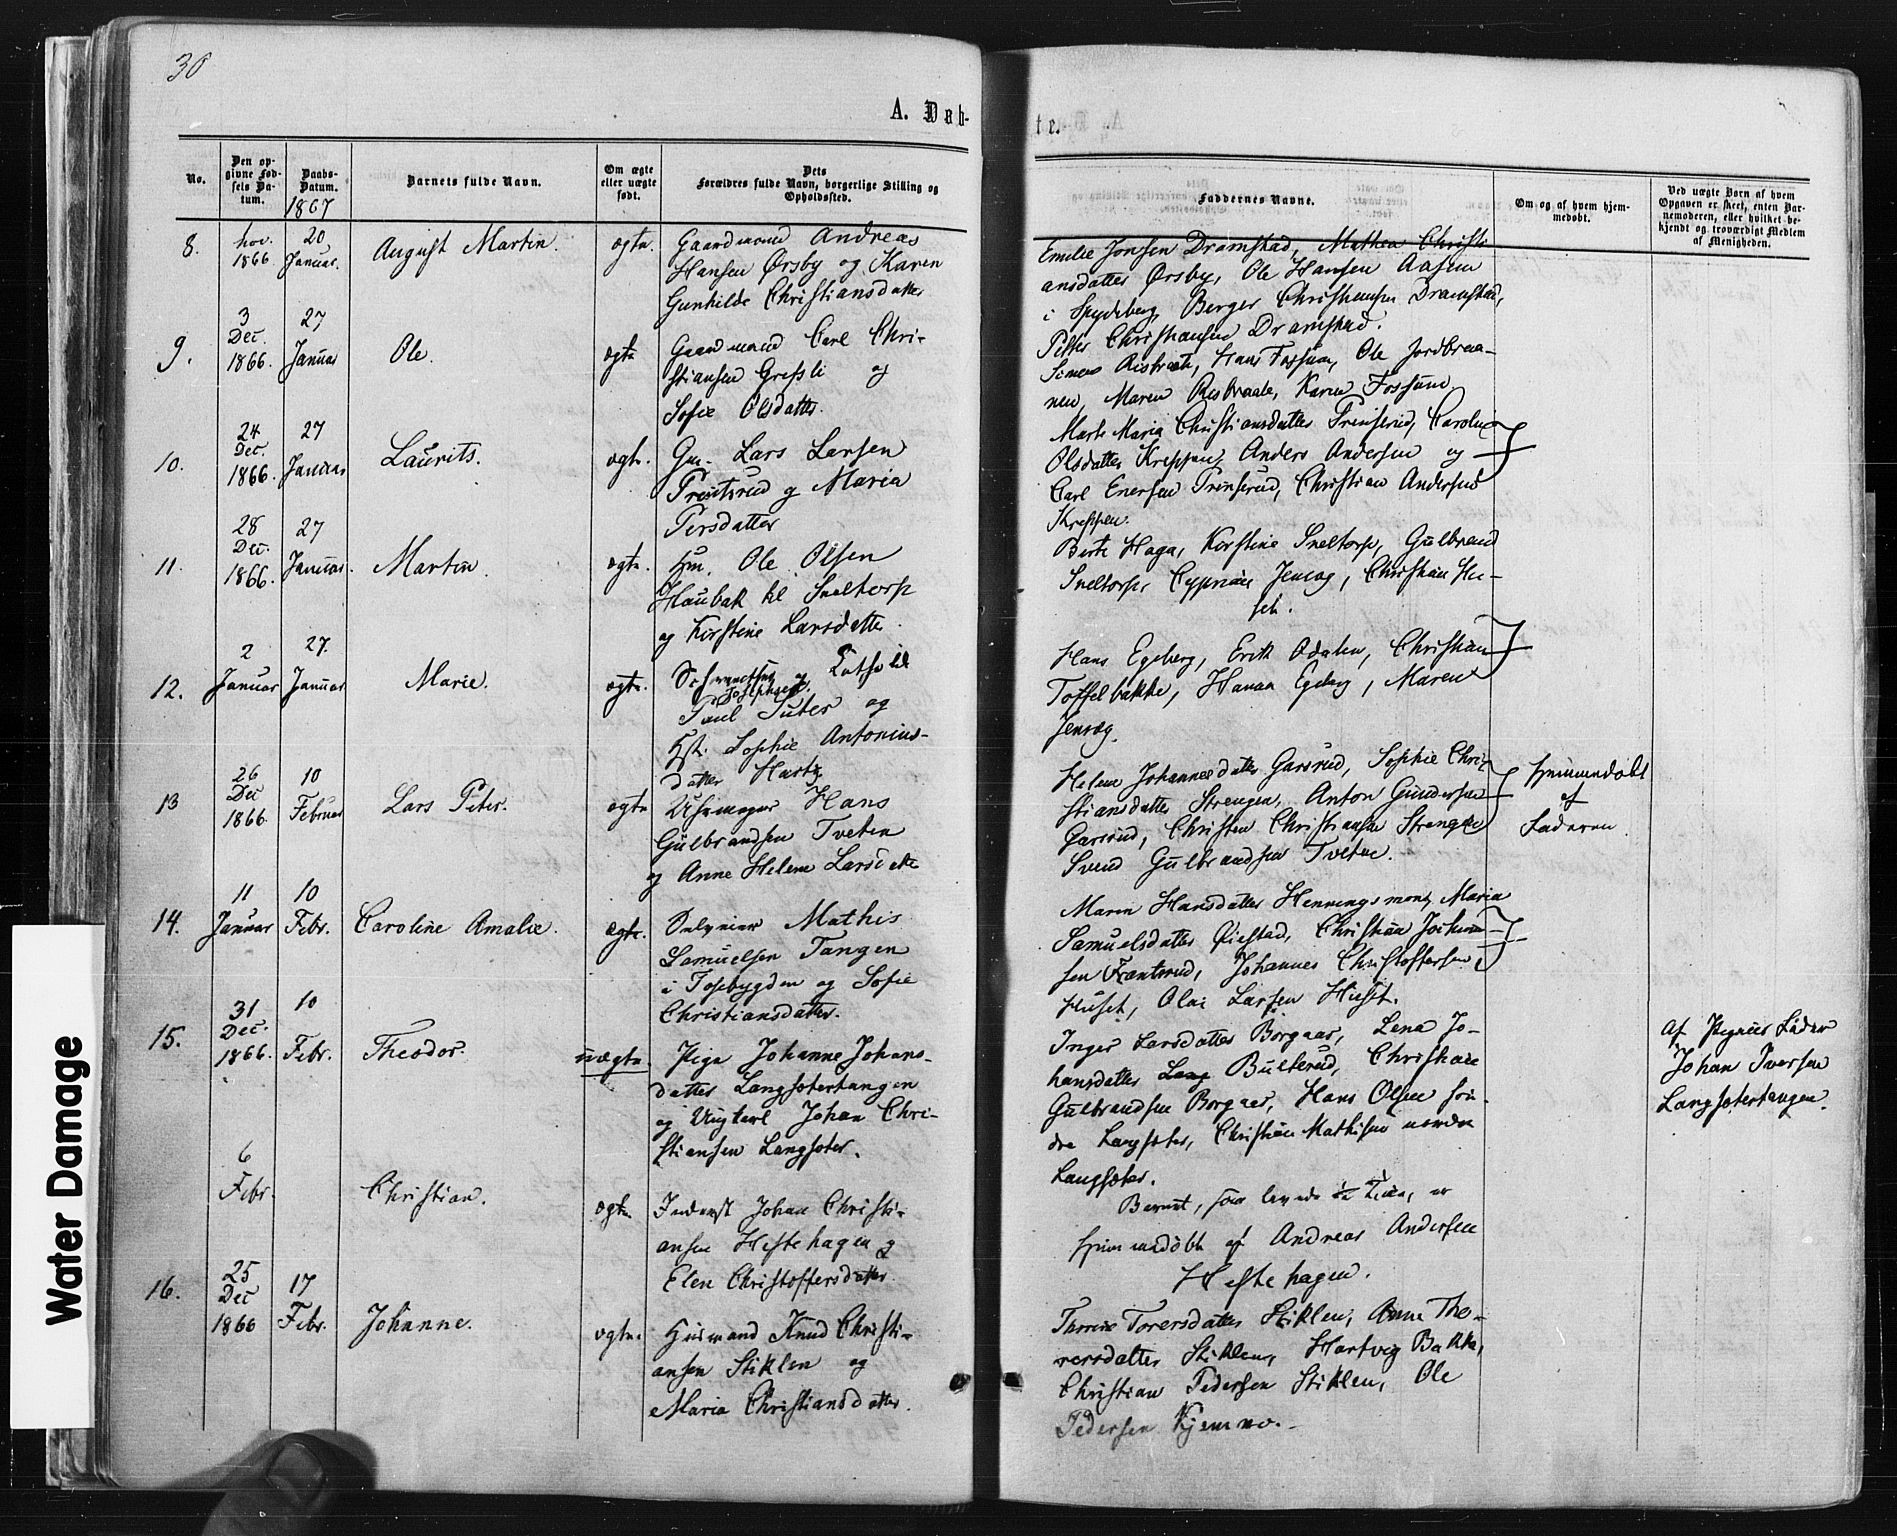 30
A. Døb-
te.
No.
Den op-
givne Fød-
sels Da-
tum.
Daabs-
Datum.
1867
Barnets fulde Navn.
Om ægte
eller uægte
født.
Dets
Forældres fulde Navn, borgerlige Stilling og
Opholdssted.
Faddernes Navne.
Om og af hvem hjem-
medøbt.
Ved uægte Børn af hvem
Opgaven er skeet, enten Bar-
nemoderen, eller hvilket be-
kjendt og troværdigt Medlem
af Menigheden.
8.
nov.
1866
20
Januar.
August Martin
ægte.
Gaardmand Andreas
Hansen Ørsby og Karen
Gunhilde Christiansdatter
Emilie Jonsen Dramstad, Mathea Christi
ansdatter Ørsby, Ole Hansen Aasen
i Spydeberg, Berger Christiansen Dramstad,
Petter Christiansen Dramstad.
9.
3
Dec.
1866.
27
Januar
Ole.
ægte
Gaardmand Carl Chri-
stiansen Gresli og
Sofie Olsdatter.
Simen Risbraate, Hans Fossum, Ole Jordbraa-
nen, Maren Risbraate, Karen Fossum.
10.
24
Dec.
1866.
27
Januar
Laurits.
ægte.
Gm. Lars Larsen
og Maria
Persdatter
Marte Maria Christiansdatter Caroline
Olsdatter Kreppen, Anders Andersen og
Carl Enersen Christian Andersen
Kreppen.
11.
28
Dec.
1866.
27
Januar.
Martin
ægte.
Hm. Ole Olsen
Haubak til Sneltorp
og Kirstine Larsdatter.
Berte Haga, Kirstine Sneltorp, Gulbrand
Sneltorp, Jensæg, Christian Hu-
set.
12.
2
Januar
27.
Januar
Marie.
ægte.
Josephsen
Paul Suter og
Hst. Sophie Antonius-
datter Hartz.
Hans Egeberg, Erik Odalen, Christian
Toffelbakke, Hanna Egeberg, Maren
Jensæg.
13
26
Dec
1866.
10
Februar
Lars Peter.
ægte
Hans
Gulbrandsen Tveten
og Anne Helene Larsdatter
Helene Johannesdatter Garsrud, Sophie Chri-
stiansdatter Strengen, Anton Gundersen
Garsrud, Christen Christiansen Strengen
Svend Gulbrandsen Tveten.
hjemmedøbt
af
Faderen.
14.
11
Januar
10
Febr.
Caroline Amalie.
ægte.
Selveier Mathis
Samuelsen Tangen
i Tosebygden og Sofie
Christiansdatter.
Maren Hansdatter Henningsmoen, Maria
Samuelsdatter Øiestad, Christian Jochum-
sen Frantsrud, Johannes Christoffersen
Huset, Olai Larsen Huset.
15.
31
Dec.
1866.
10
Febr.
Theodor.
uægte
Pige Johanne Johans-
datter Langsætertangen
og Ungkarl Johan Chri-
stiansen Langsæter.
Inger Larsdatter Borgaas, Lena Jo-
hansdatter Lang Bulterud, Christian
Gulbrandsen Borgaas, Hans Olsen søn-
dre Langsæter, Christian Mathisen nordre
Langsæter.
Af Pigens Fader
Johan Iversen
Langsætertangen.
6
Febr.
Christian.
ægte
Inderst Johan Christi-
ansen Heftehagen og
Elen Christoffersdatter.
Barnet, som levede ½ Time, er
hjemmedøbt af Andreas Andersen
Heftehagen.
16.
25
Dec
1866
17
Febr.
Johanne.
ægte.
Husmand Knud Christi-
ansen Stiklen og
Maria Christiansdatter.
Thorine Torersdatter Stiklen, Anne Tho-
rersdatter Stiklen, Hartvig Bakke,
Christian Pedersen Stiklen, Ole
Pedersen Kjemmo.
Water Damage